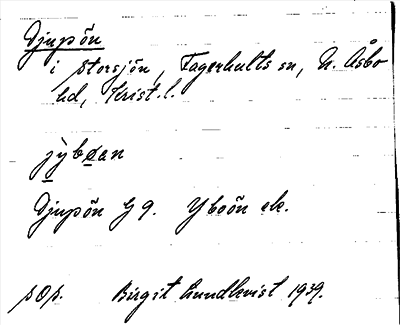 Djupön
i Storsjön, Fagerhults sn, N. Åsbo
hd, Krist. l.
jỳbøan
Djupön G 9. Yboön ek.
sOp. Birgit Lundkvist 1939.